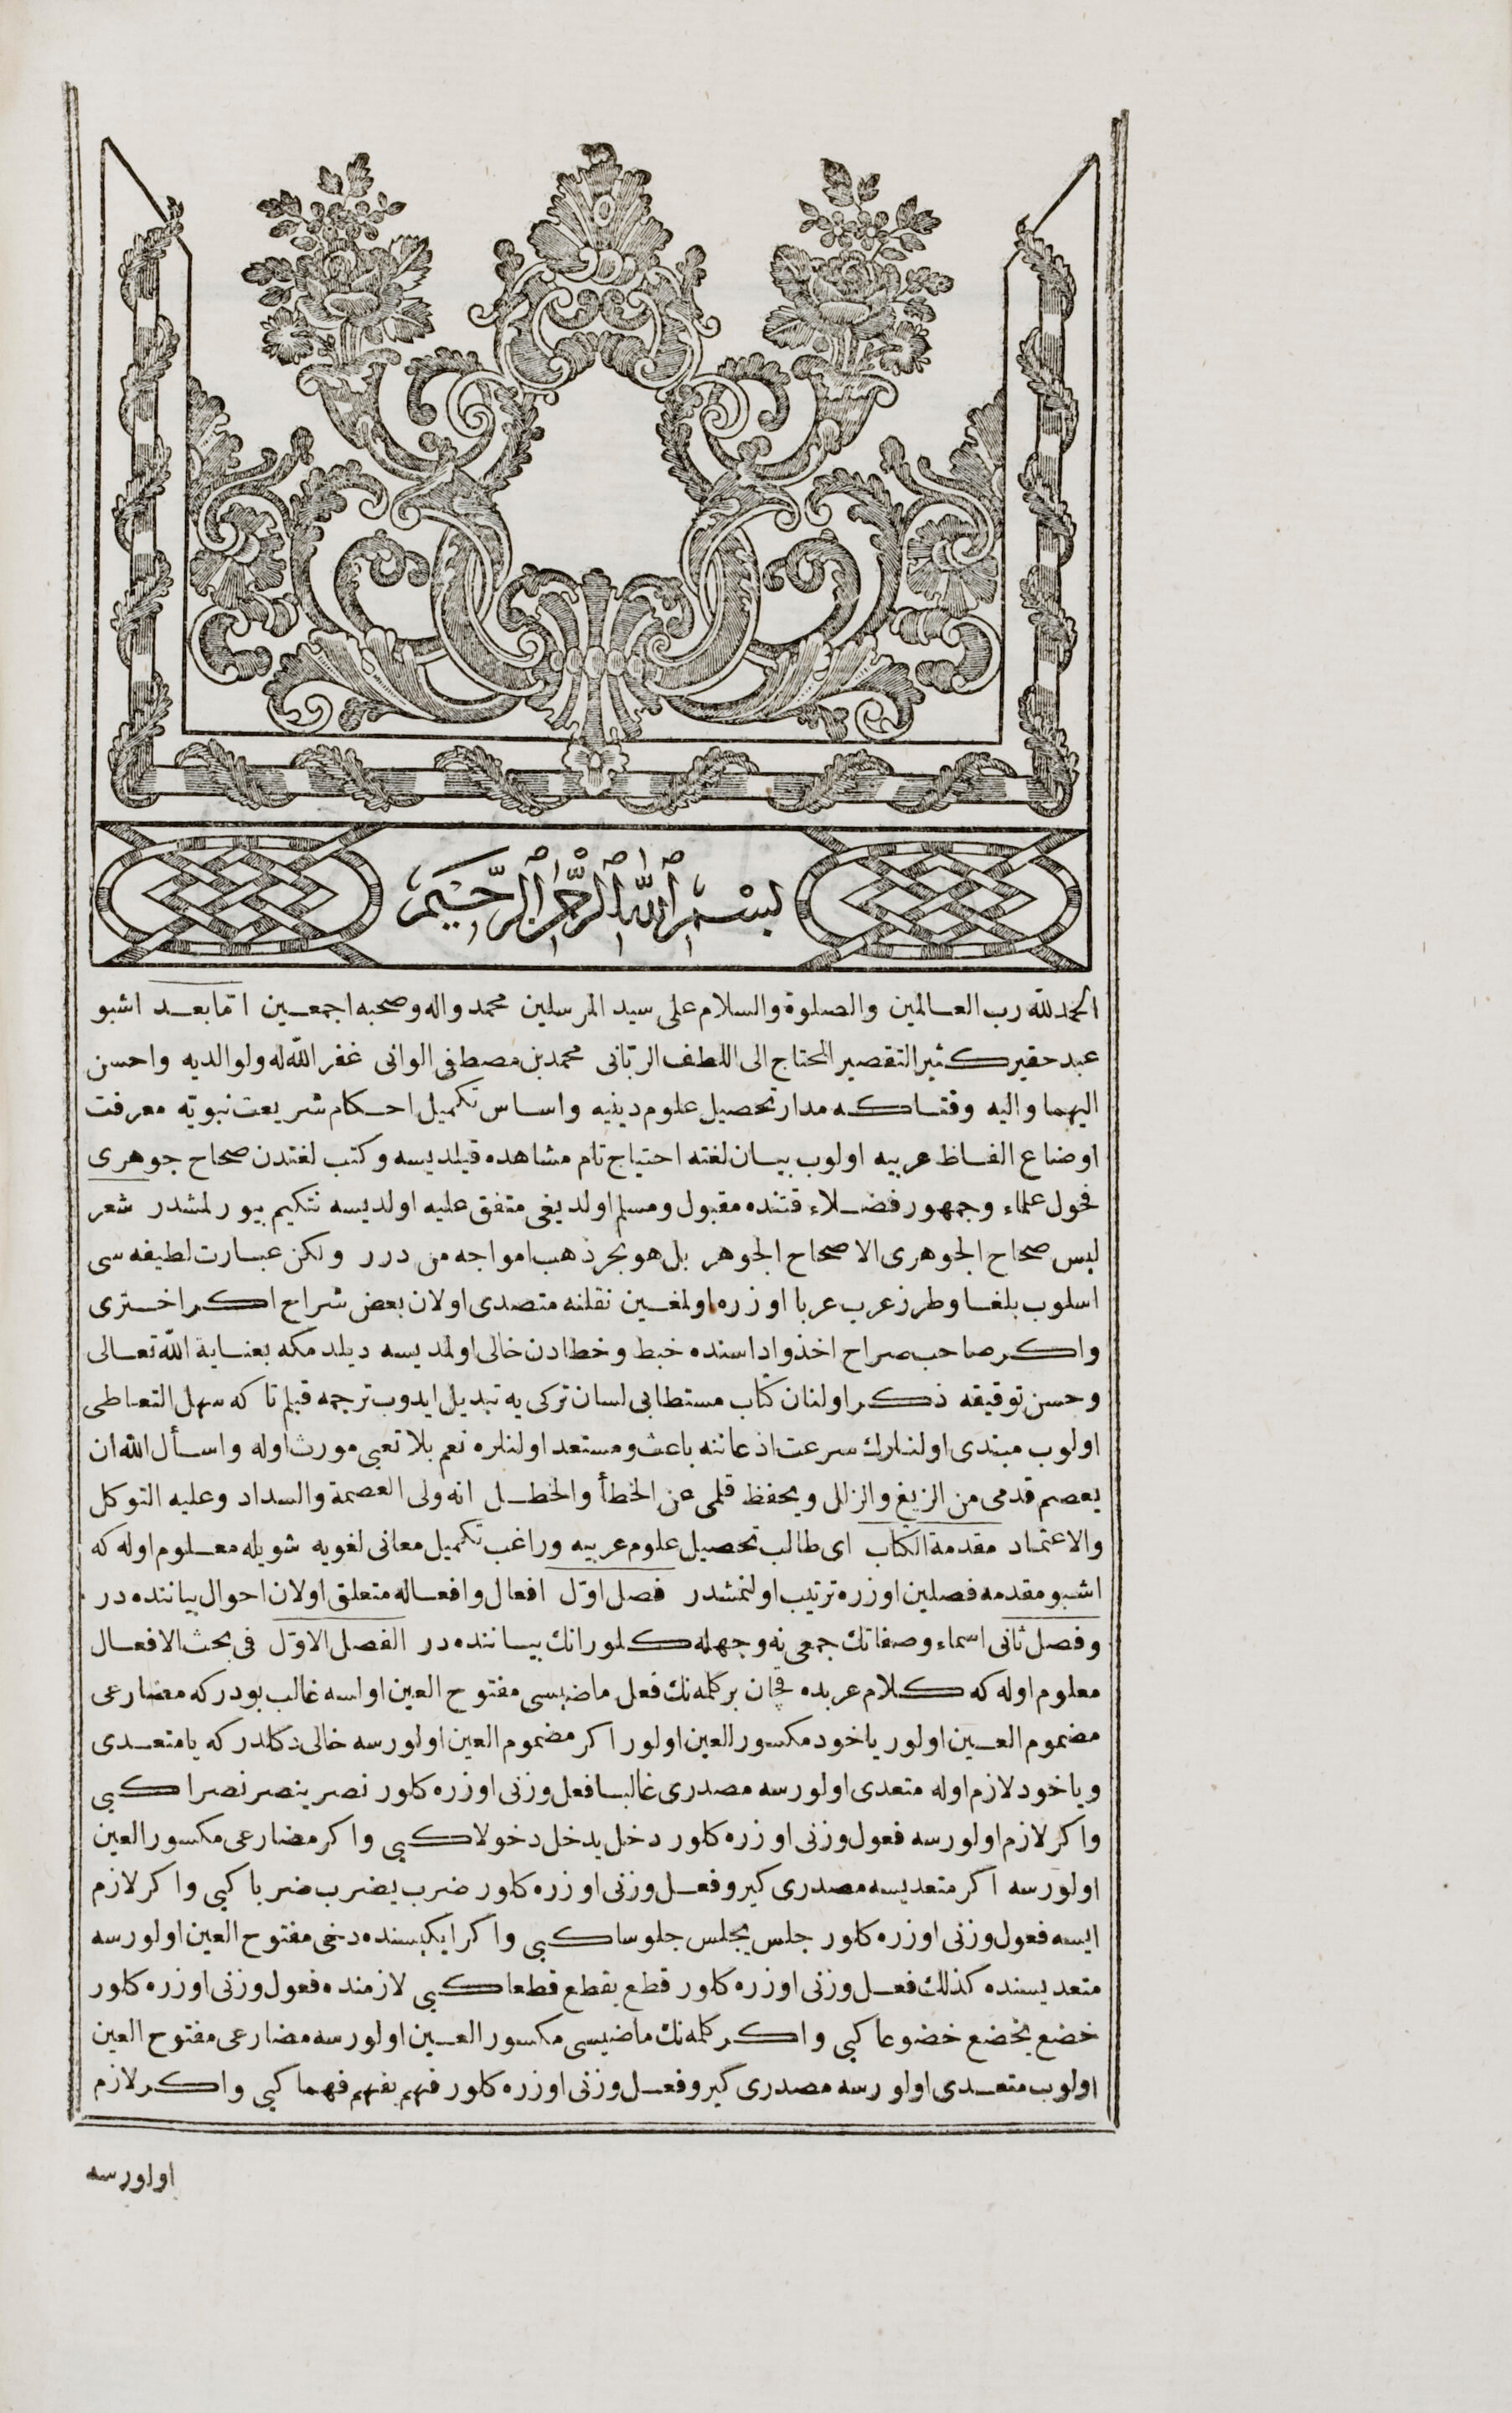 بسم الله الرحمن الرحيم
الحمد لله رب العالمين والصلوة والسلام على سيد المرسلين محمد واله وصحبه اجمعين امّا بعد اشبو
عبد حقير كثير التقصير المحتاج الى اللطف الربّانى محمد بن مصطفى الوانى غفر الله له ولوالديه واحسن
اليهما واليه وقتاكه مدار تحصيل علوم دينيه واساس تكميل احكام شريعت نبويّه معرفت
اوضاع الفاظ عربيه اولوب بيان لغته احتياج تام مشاهده قيلديسه وكتب لغتدن صحاح جوهرى
فحول علماء وجمهور فضلاء قتنده مقبول ومسلم اولديغى متفق عليه اولديسه نتكيم بيورلمشدر شعر
ليس صحاح الجوهرى الا صحاح الجوهر بل هو بحر ذهب امواجه من درر ولكن عبارت لطيفه سى
اسلوب بلغا وطرز عرب عربا اوزره اولمغين نقلنه متصدى اولان بعض شراح اكر اخترى
واكر صاحب صراح اخذ واداسنده خبط وخطادن خالى اولمديسه ديلدمكه بعناية الله تعالى
وحسن توفيقه ذكر اولنان كتاب مستطابى لسان تركى يه تبديل ايدوب ترجمه قيلم تا كه سهل التعاطى
اولوب مبتدى اولنلرك سرعت اذعاننه باعث ومستعد اولنلره نعم بلا تعبى مورث اوله واسأل الله ان
يعصم قدمى من الزيغ والزلل ويحفظ قلمى عن الخطأ والخطل انه ولى العصمة والسداد وعليه التوكل
والاعتماد مقدمة الكتاب اى طالب تحصيل علوم عربيه وراغب تكميل معانى لغويه شويله معلوم اوله كه
اشبو مقدمه فصلين اوزره ترتيب اولنمشدر فصل اوّل افعال وافعاله متعلق اولان احوال بياننده در
وفصل ثانى اسماء وصفاتك جمعى نه وجهله كلور انك بياننده در الفصل الاوّل فى بحث الافعال
معلوم اوله كه كلام عربده قچان بر كلمه نك فعل ماضيسى مفتوح العين اولسه غالب بودركه مضارعى
مضموم العين اولور ياخود مكسور العين اولور اكر مضموم العين اولورسه خالى دكلدر كه يا متعدى
وياخود لازم اوله متعدى اولورسه مصدرى غالبا فعل وزنى اوزره كلور نصر ينصر نصرا كبى
واكر لازم اولورسه فعول وزنى اوزره كلور دخل يدخل دخولا كبى واكر مضارعى مكسور العين
اولورسه اكر متعديسه مصدرى كيرو فعل وزنى اوزره كلور ضرب يضرب ضربا كبى واكر لازم
ايسه فعول وزنى اوزره كلور جلس يجلس جلوسا كبى واكر ايكيسنده دخى مفتوح العين اولورسه
متعديسنده كذلك فعل وزنى اوزره كلور قطع يقطع قطعا كبى لازمنده فعول وزنى اوزره كلور
خضع يخضع خضوعا كبى واكر كلمه نك ماضيسى مكسور العين اولورسه مضارعى مفتوح العين
اولوب متعدى اولورسه مصدرى كيرو فعل وزنى اوزره كلور فهم يفهم فهما كبى واكر لازم
اولورسه